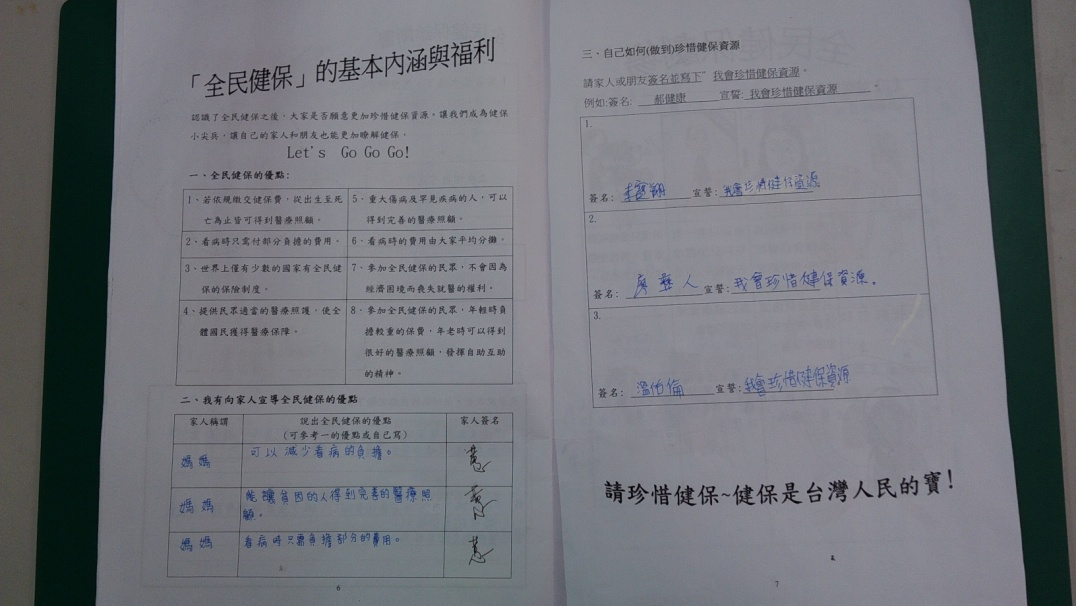 「全民健保」的基本內涵與福利
認識了全民健保之後，大家是否願意更加珍惜健保資源。讓我們成為健保
小尖兵，讓自己的家人和朋友也能更加瞭解健保，
Let's Go Go Go!
一、全民健保的優點:
1、若依規繳交健保費，從出生至死
亡為止皆可得到醫療照顧。
5、重大傷病及罕見疾病的人，可以
得到完善的醫療照顧。
2、看病時只需付部分負擔的費用。
6、看病時的費用由大家平均分攤。
3、世界上僅有少數的國家有全民健
保的保險制度。
7、參加全民健保的民眾，不會因為
經濟困境而喪失就醫的權利。
4、提供民眾適當的醫療照護，使全
體國民獲得醫療保障。
8、參加全民健保的民眾，年輕時負
擔較重的保費，年老時可以得到
很好的醫療照顧，發揮自助互助
的精神。
二、我有向家人宣導全民健保的優點
家人稱謂 說出全民健保的優點 家人簽名
(可參考一的優點或自己寫)
媽媽 可以減少看病的負擔。
媽媽 能讓貧困的人得到完善的醫療照
顧。
媽媽 看病時只需負擔部分的費用。
6
三、自己如何(做到)珍惜健保資源
請家人或朋友簽名並寫下"我會珍惜健保資源。
例如:簽名: 郝健康 宣誓: 我會珍惜健保資源 。
1.
簽名: 宣誓: 我會珍惜健保資源
2.
簽名: 宣誓: 我會珍惜健保資源。
3.
簽名: 溫伯倫 宣誓: 我會珍惜健保資源
請珍惜健保~健保是台灣人民的寶!
7